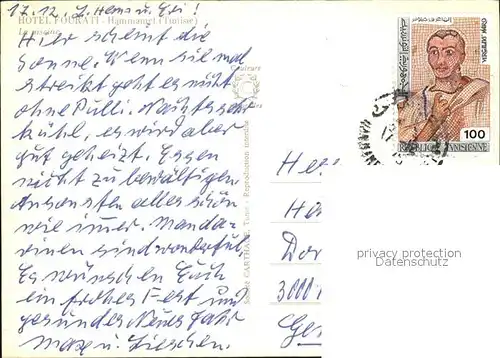 17.12. L. Hans u. Evi!
HOTEL FOURATI - Hammamet (Tunisie)
La piscine
Hier scheint die
Sonne. Wenn sie mal
streikt geht es nicht
ohne Pulli. Nachts sehr
kühl, es wird aber
gut geheizt. Essen
nicht zu bewältigen
Ansonsten alles schön
wie immer. Manda-
rinen sind wundervoll
Es wünschen Euch
ein frohes Fest und
gesundes Neues Jahr
Max u. Lieschen.
CARTHAGE, Tunis - Reproduction interdite
100
REPUBLIQUE TUNISIENNE
Her
Ha
Dor
3000
Ger
privacy protection
Datenschutz